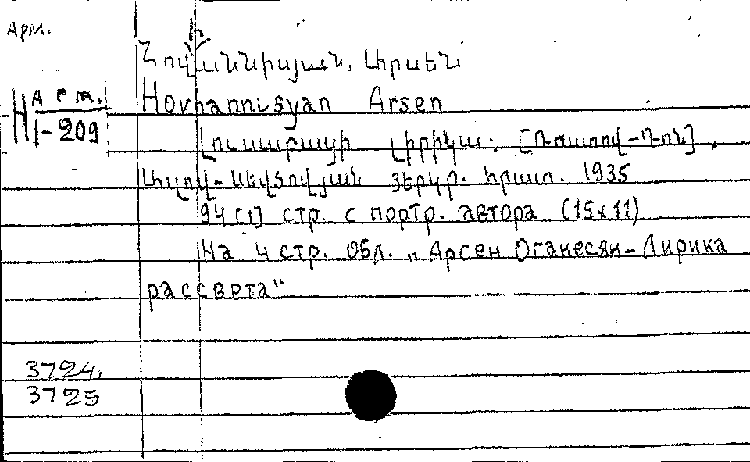 Арм.
Հովհաննիսյան, Արսեն
Hovhannisyan Arsen
Н Арм.
1-209
Լուսաբացի լիրիկա. [Ռոստով-Դոն],
Ազով-Սևծովյան երկր. հրատ. 1935
94 [1] стр. с портр. автора (15х11)
На 4 стр. обл. „Арсен Оганесян-Лирика
рассвета"
3724,
3725